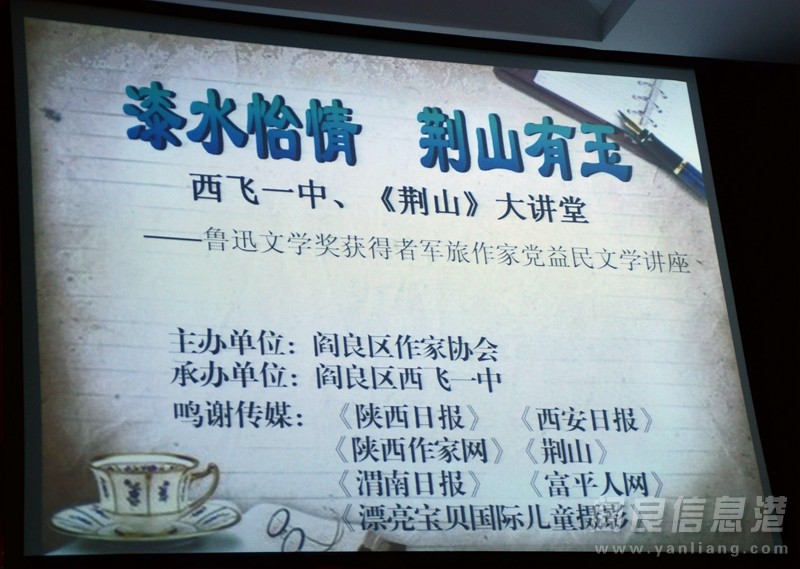 漆水怡情 荆山有玉
西飞一中、《荆山》大讲堂
——鲁迅文学奖获得者军旅作家党益民文学讲座
主办单位：阎良区作家协会
承办单位：阎良区西飞一中
鸣谢传媒：《陕西日报》 《西安日报》
《陕西作家网》《荆山》
《渭南日报》 《富平人网》
《漂亮宝贝国际儿童摄影
阎良信息港
www.yanliang.com